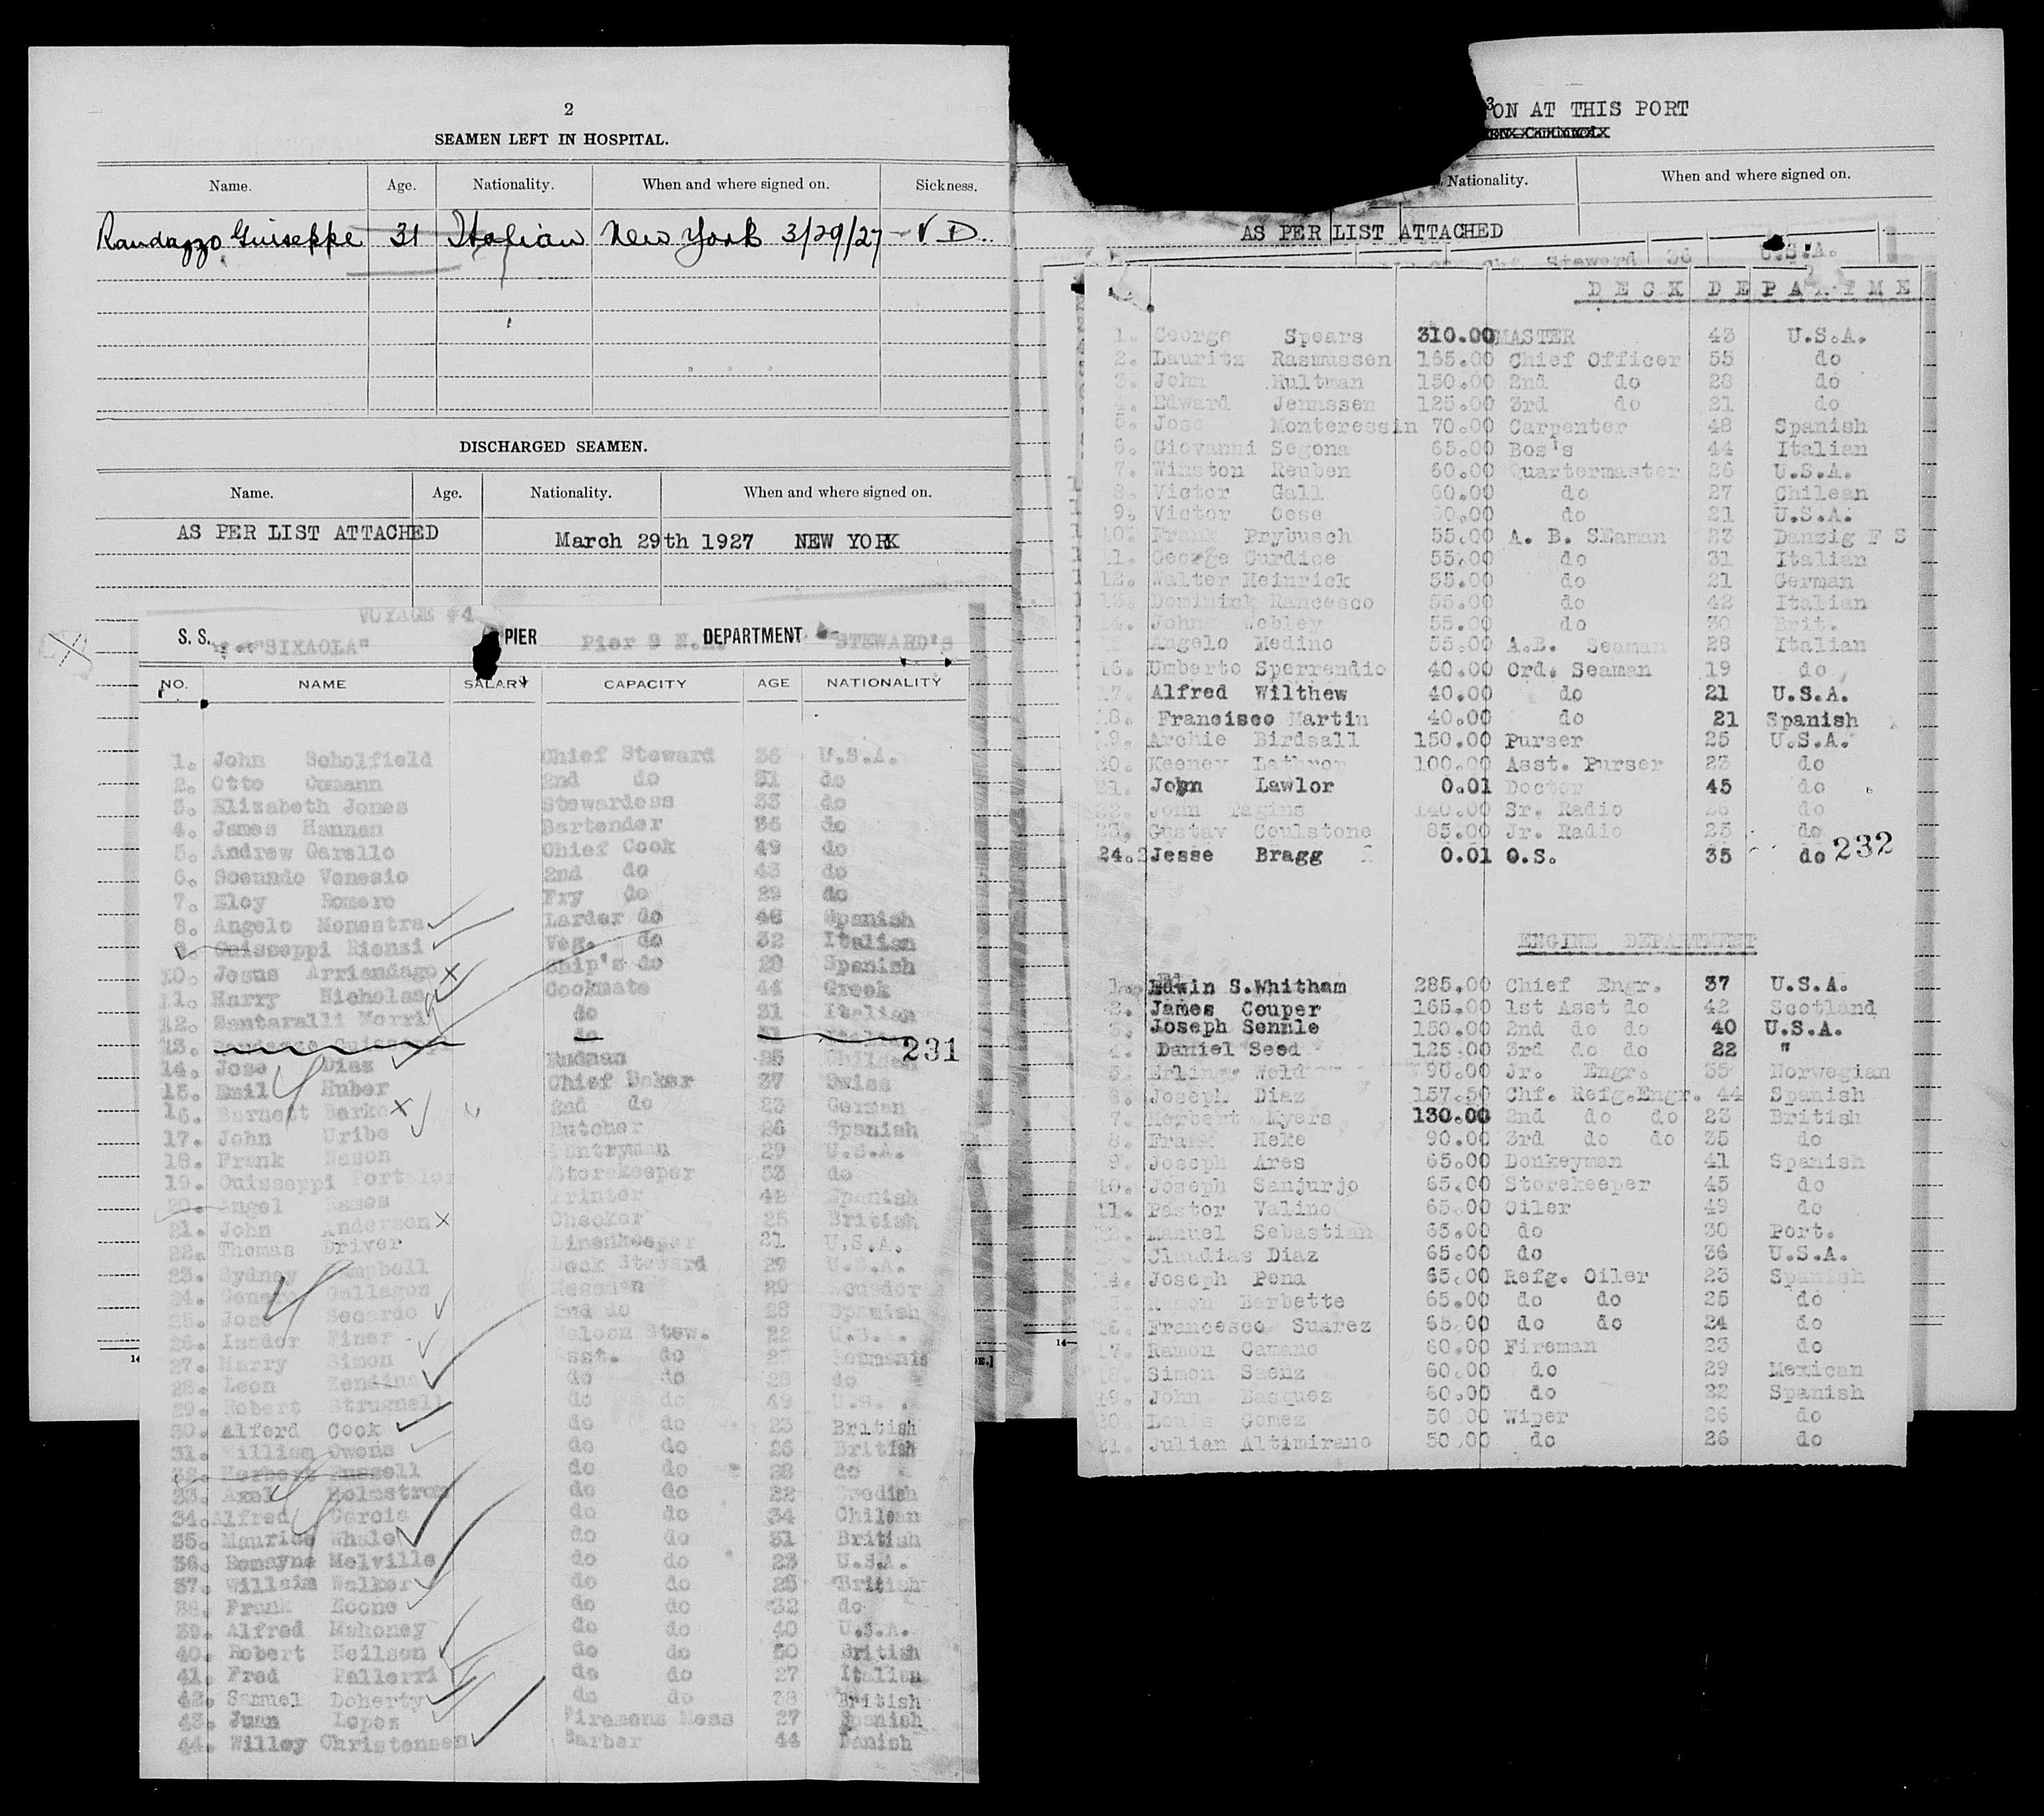 2
SEAMEN LEFT IN HOSPITAL.
Name. Age. Nationality. When and where signed on. Sickness.
Randazzo Guiseppe 31 Italian New York 3/29/27 - V D.
DISCHARGED SEAMEN.
Name. Age. Nationality. When and where signed on.
AS PER LIST ATTACHED March 29th 1927 NEW YORK
VOYAGE #4
S. S. "SIXAOLA" PIER Pier 9 N.R. DEPARTMENT STEWARD'S
NO. NAME SALARY CAPACITY AGE NATIONALITY
1. John Scholfield Chief Steward 36 U.S.A.
2. Otto Oomann 2nd do 31 do
3. Elizabeth Jones Stewardess 35 do
4. James Hannan Bartender 36 do
5. Andrew Garello Chief Cook 49 do
6. Socundo Venesio 2nd do 43 do
7. Eloy Romero Fry do 29 do
8. Angelo Monestra Larder do 46 Spanish
9. Guisseppi Riensi Veg. do 32 Italian
10. Jesus Arriandago Ship's do 28 Spanish
11. Harry Nicholas Cookmate 44 Greek
12. Santaralli Morri do 31 Italian
13. do 31 Italian
231
14. Jose Dias 25
15. Emil Huber Chief Baker 27 Swiss
16. Barnett Barke 2nd do 23 German
17. John Uribe Butcher 26 Spanish
18. Frank Nason Pantryman 29 U.S.A.
19. Guisseppi Storekeeper 33 do
20. Angel Ramos Printer 42 Spanish
21. John Anderson Checker 25 British
22. Thomas Driver Linenkeeper 21 U.S.A.
23. Sydney Campbell Deck Steward 29 U.S.A.
24. Genero Gallegos Messman 29 Ecuador
25. Jose Secardo 2nd do 28 Spanish
26. Isador Finer Saloon Stew. 22 U.S. .
27. Harry Simon Asst. do 25 Roumania
28. Leon Mendina do do 28 do
29. Robert Strugnell do do 49 U.S. .
30. Alferd Cook do do 23 British
31. William Owens do do 26 British
32. Herbert Russell do do 28 do
33. Axel Holmstrom do do 22 Swedish
34. Alfred Garcia do do 34 Chilean
35. Maurice Whale do do 31 British
36. Romayne Melville do do 23 U.S.A.
37. Willaim Walker do do 25 British
38. Frank Noone do do 32 do
39. Alfred Mahoney do do 40 U.S.A.
40. Robert Neilson do do 50 British
41. Fred Pallerri do do 27 Italian
42. Samuel Doherty do do 38 British
43. Juan Lopez Firemans Mess 27 Spanish
44. Willey Christensen Barber 44 Danish
3
ON AT THIS PORT
Nationality. When and where signed on.
AS PER LIST ATTACHED
Chf. Steward 36 U.S.A.
DECK DEPARTME
1. George Spears 310.00 MASTER 43 U.S.A.
2. Lauritz Rasmussen 165.00 Chief Officer 55 do
3. John Hultman 150.00 2nd do 28 do
4. Edward Jennssen 125.00 3rd do 21 do
5. Jose Monteressin 70.00 Carpenter 48 Spanish
6. Giovanni Segona 65.00 Bos's 44 Italian
7. Winston Reuben 60.00 Quartermaster 26 U.S.A.
8. Victor Gall 60.00 do 27 Chilean
9. Victor Oese 60.00 do 21 U.S.A.
10. Frank Prybusch 55.00 A. B. SEaman 23 Danzig F S
11. George Gurdice 55.00 do 31 Italian
12. Walter Heinrick 55.00 do 21 German
13. Dominick Rancesco 55.00 do 42 Italian
14. John Wobley 55.00 do 30 Brit.
Angelo Medino 55.00 A.B. Seaman 28 Italian
16. Umberto Sperrendio 40.00 Ord. Seaman 19 do
17. Alfred Wilthew 40.00 do 21 U.S.A.
18. Francisco Martin 40.00 do 21 Spanish
19. Archie Birdsall 150.00 Purser 25 U.S.A.
20. Keeney Lathrop 100.00 Asst. Purser 23 do
21. John Lawlor 0.01 Doctor 45 do
22. John Tagins 140.00 Sr. Radio 26 do
23. Gustav Coulstone 85.00 Jr. Radio 25 do
24. Jesse Bragg 0.01 O.S. 35 do 232
ENGINE DEPARTMENT
1. Edwin S.Whitham 285.00 Chief Engr. 37 U.S.A.
2. James Couper 165.00 1st Asst do 42 Scotland
3. Joseph Sennle 150.00 2nd do do 40 U.S.A.
4. Daniel Seed 125.00 3rd do do 22 "
5. Erling Wold 90.00 Jr. Engr. 35 Norwegian
6. Joseph Diaz 157.50 Chf. Refg.Engr. 44 Spanish
7. Herbert Myers 130.00 2nd do do 23 British
8. Frank Heke 90.00 3rd do do 35 do
9. Joseph Ares 65.00 Donkeyman 41 Spanish
10. Joseph Sanjurjo 65.00 Storekeeper 45 do
11. Pastor Valino 65.00 Oiler 49 do
12. Manuel Sebastian 65.00 do 30 Port.
Claudias Diaz 65.00 do 36 U.S.A.
14. Joseph Pena 65.00 Refg. Oiler 23 Spanish
Ramon Barbette 65.00 do do 25 do
16. Francesco Suarez 65.00 do do 24 do
17. Ramon Camano 60.00 Fireman 23 do
18. Simon Saenz 60.00 do 29 Mexican
19. John Basquez 60.00 do 32 Spanish
20. Louis Gomez 50.00 Wiper 26 do
21. Julian Altimirano 50.00 do 26 do